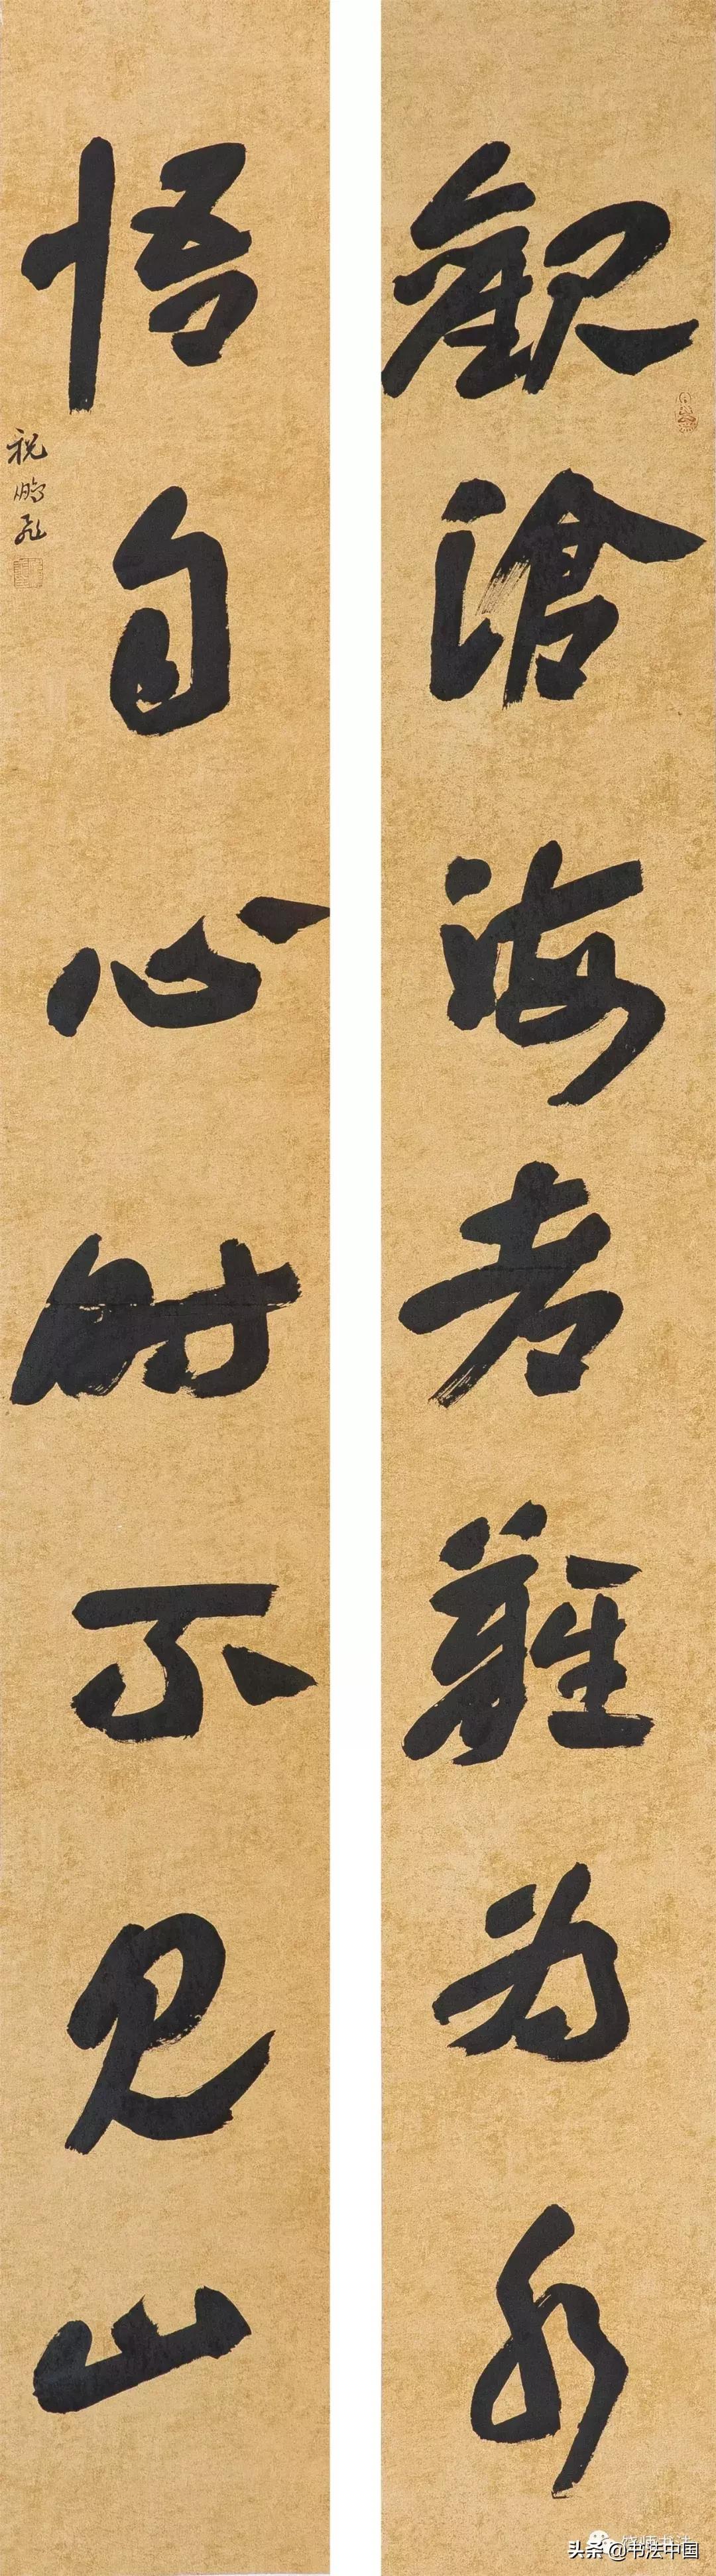 觀滄海者難为水
悟自心时不見山
祝鹏飞
头条 @书法中国